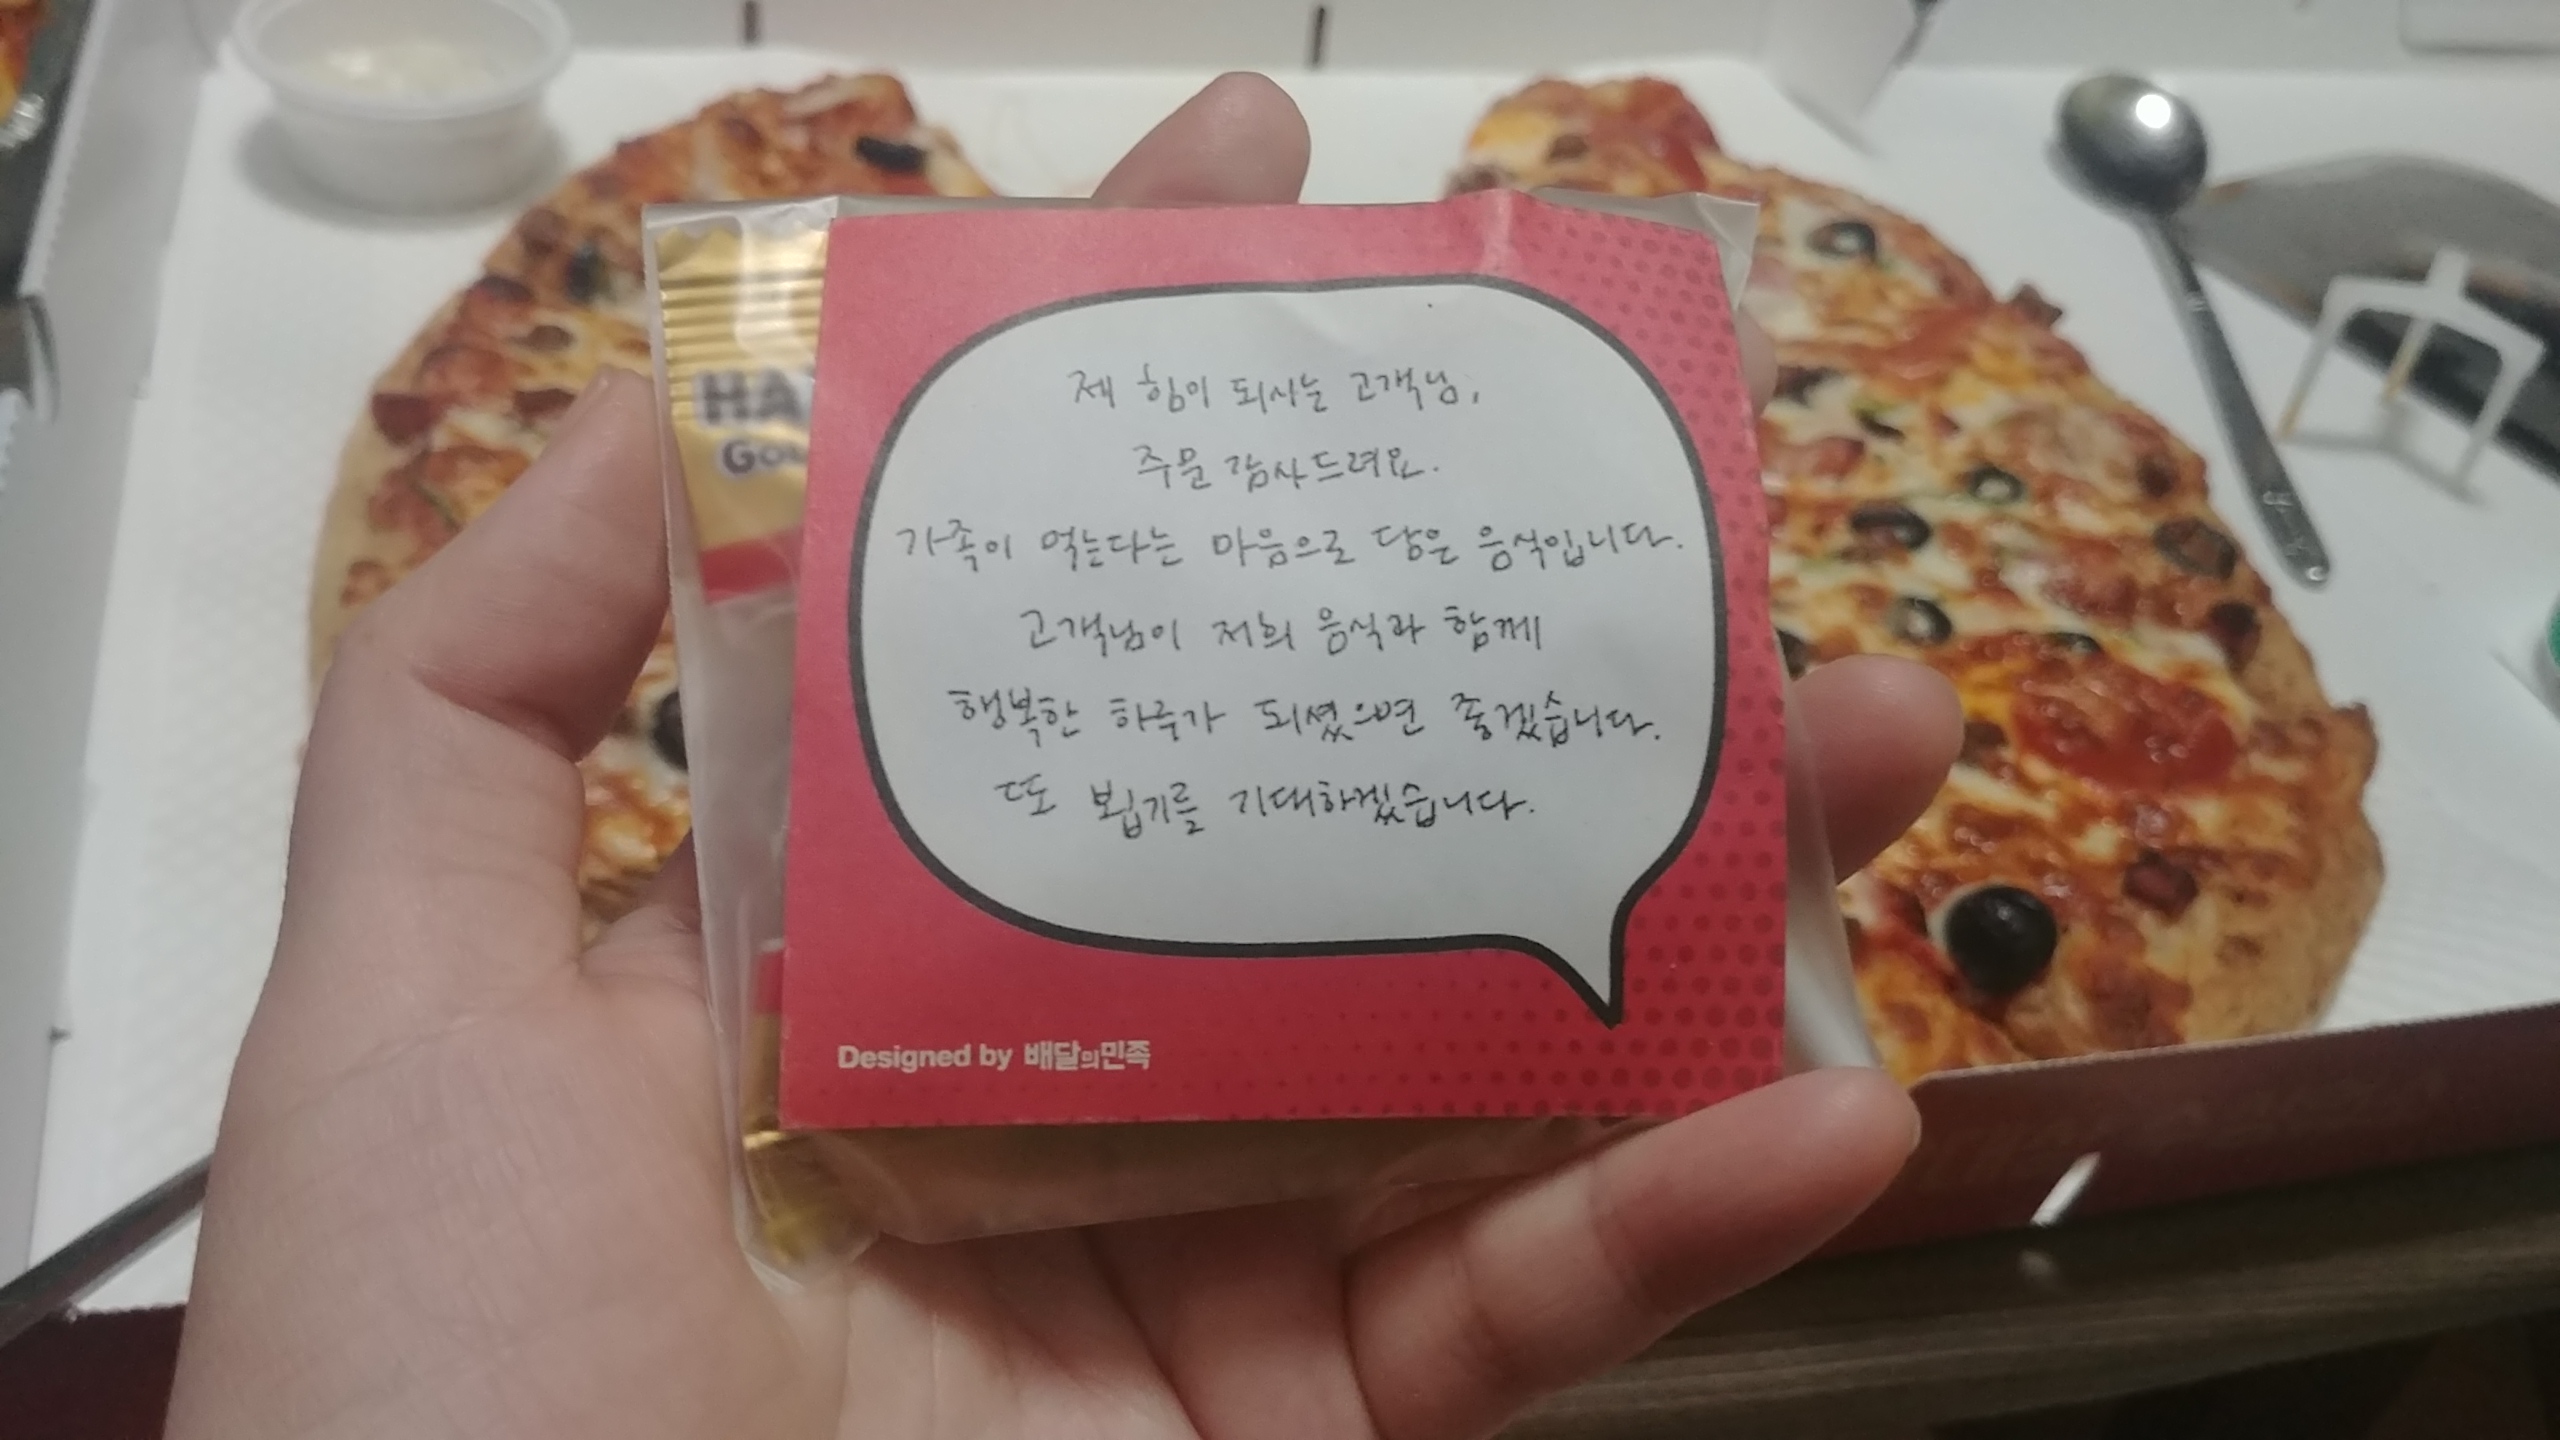 HA
Gou
제 힘이 되시는 고객님,
주문 감사드려요.
가족이 먹는다는 마음으로 담은 음식입니다.
고객님이 저희 음식과 함께
행복한 하루가 되셨으면 좋겠습니다.
또 뵙기를 기대하겠습니다.
Designed by 배달의민족